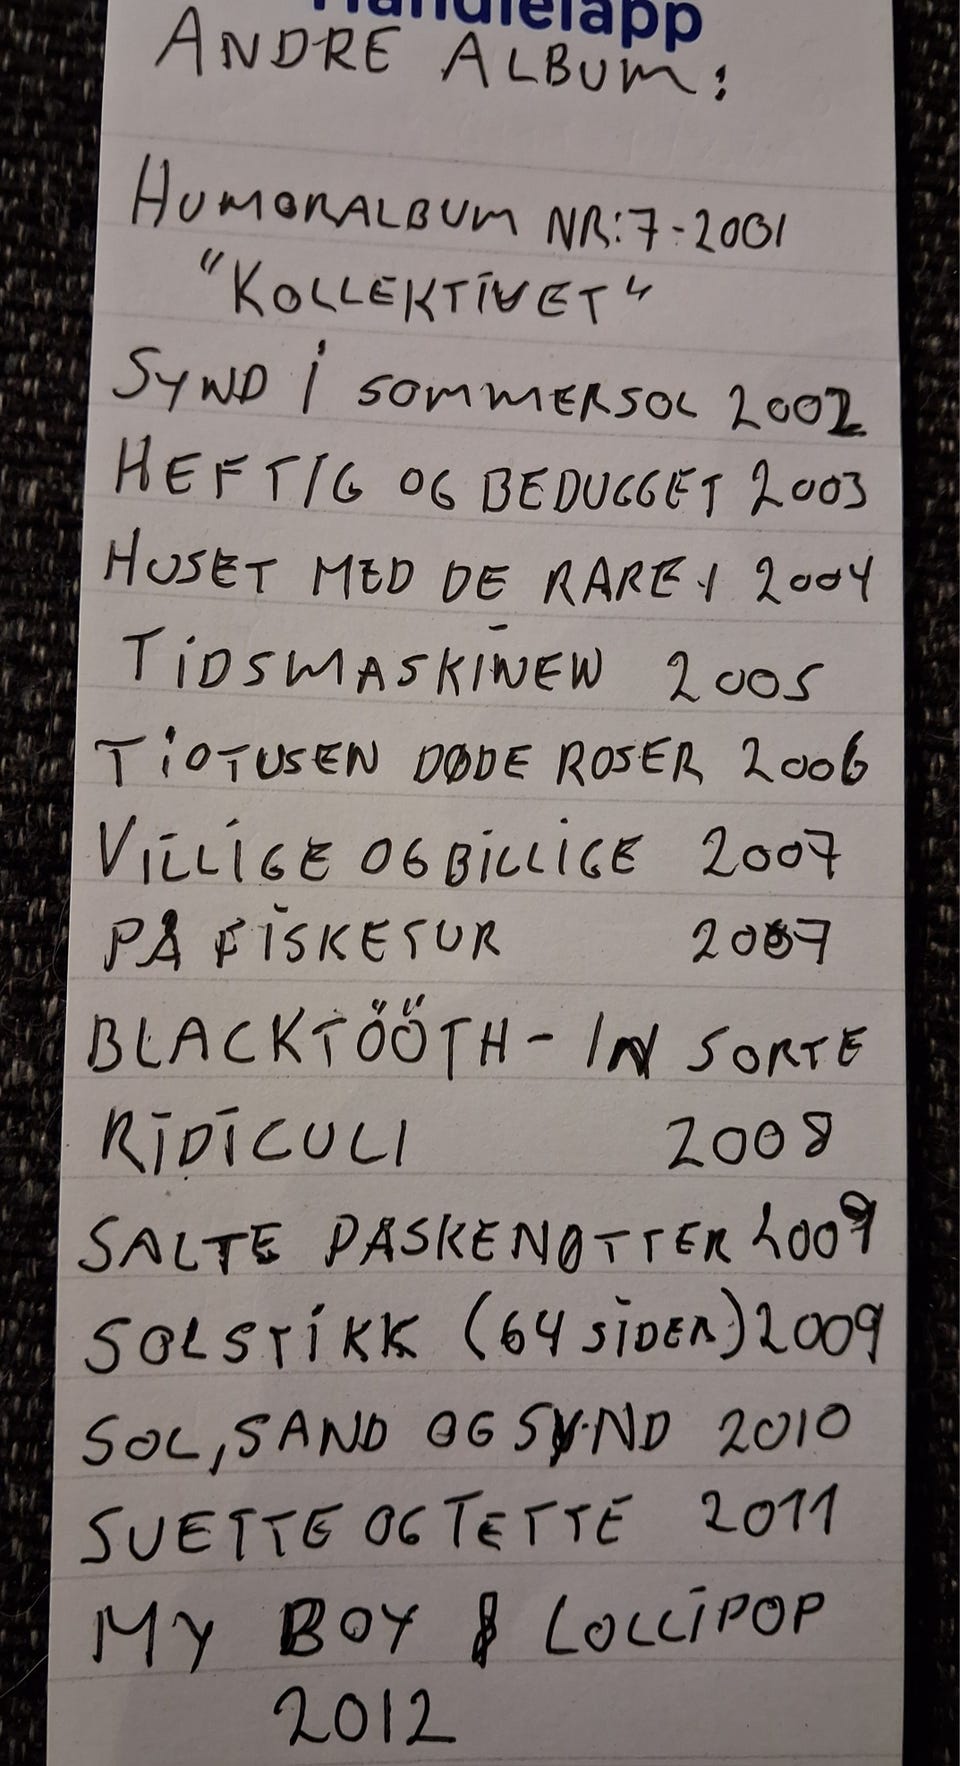 Handlelapp
ANDRE ALBUM:
HUMORALBUM NR:7-2001
"KOLLEKTIVET"
SYND I SOMMERSOL 2002
HEFTIG OG BEDUGGET 2003
HUSET MED DE RARE 1 2004
TIDSMASKINEN 2005
TIOTUSEN DØDE ROSER 2006
VILLIGE OG BILLIGE 2007
PÅ FISKETUR 2007
BLACKTÖÖTH - IN SORTE
RIDICULI 2008
SALTE PÅSKENØTTER 2009
SOLSTIKK (64 SIDER) 2009
SOL, SAND OG SYND 2010
SVETTE OG TETTE 2011
MY BOY & LOLLIPOP
2012